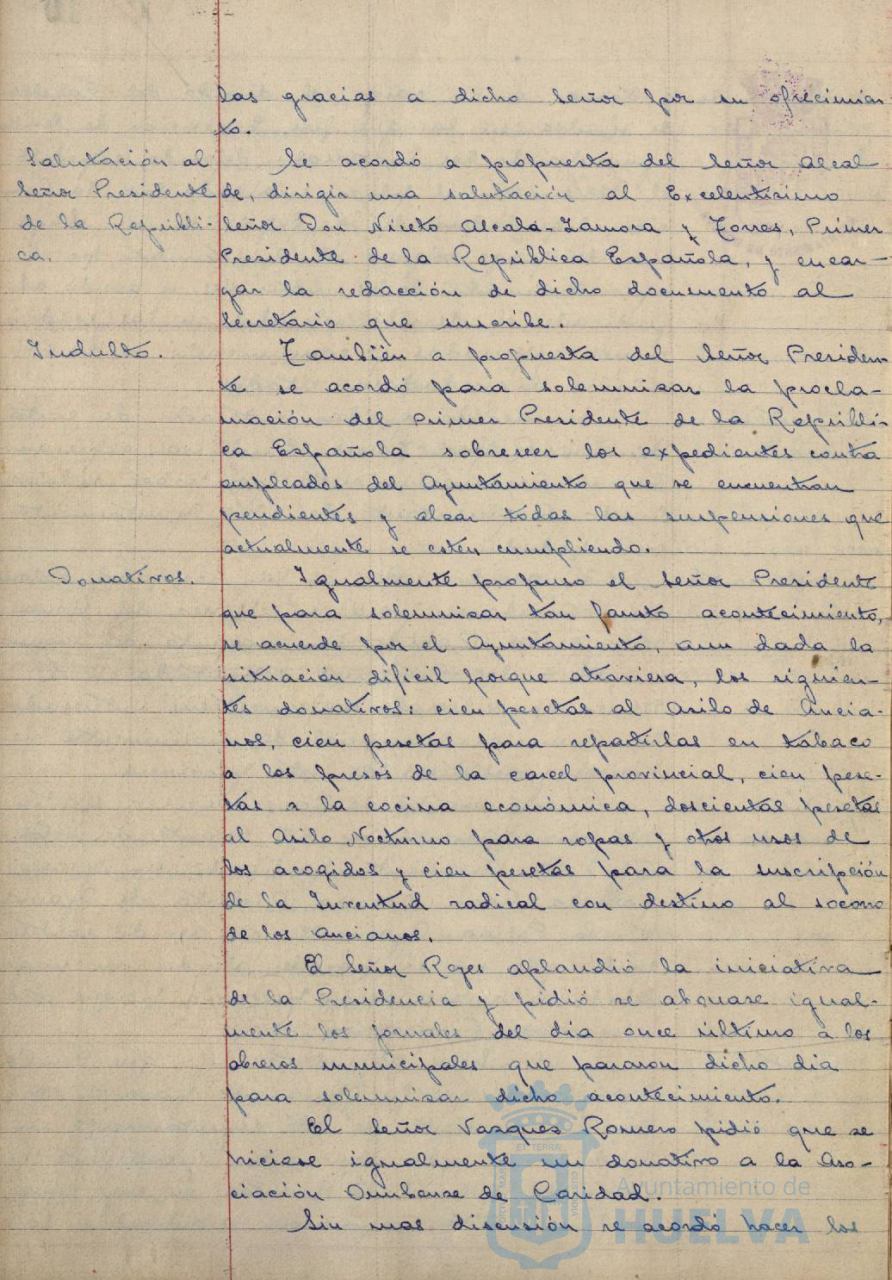 las gracias a dicho Señor por su ofrecimien-
to.
Salutación al
Señor Presidente
de la Repúbli-
ca.
Se acordó a propuesta del Señor Alcal-
de, dirigir una salutación al Excelentísimo
Señor Don Niceto Alcalá-Zamora y Torres, Primer
Presidente de la República Española, y encar-
gar la redacción de dicho documento al
Secretario que suscribe.
Indulto.
También a propuesta del Señor Presiden-
te se acordó para solemnizar la procla-
mación del Primer Presidente de la Repúbli-
ca Española sobreseer los expedientes contra
empleados del Ayuntamiento que se encuentran
pendientes y alzar todas las suspensiones que
actualmente se esten cumpliendo.
Donativos.
Igualmente propuso el Señor Presidente
que para solemnizar tan fausto acontecimiento,
se acuerde por el Ayuntamiento, aun dada la
situación dificil porque atraviesa, los siguien-
tes donativos: cien pesetas al Asilo de Ancia-
nos, cien pesetas para repartirlas en tabaco
a los presos de la carcel provincial, cien pese-
tas a la cocina económica, doscientas pesetas
al Asilo Nocturno para ropas y otros usos de
los acogidos y cien pesetas para la suscripción
de la Juventud radical con destino al socorro
de los ancianos.
El Señor Roges aplaudió la iniciativa
de la Presidencia y pidió se abonase igual-
mente los jornales del dia once último a los
obreros municipales que pararon dicho dia
para solemnizar dicho acontecimiento.
El Señor Vazques Romero pidió que se
hiciese igualmente un donativo a la Aso-
ciación Onubense de Caridad.
Sin mas discusión se acordó hacer los
Ayuntamiento de
HUELVA